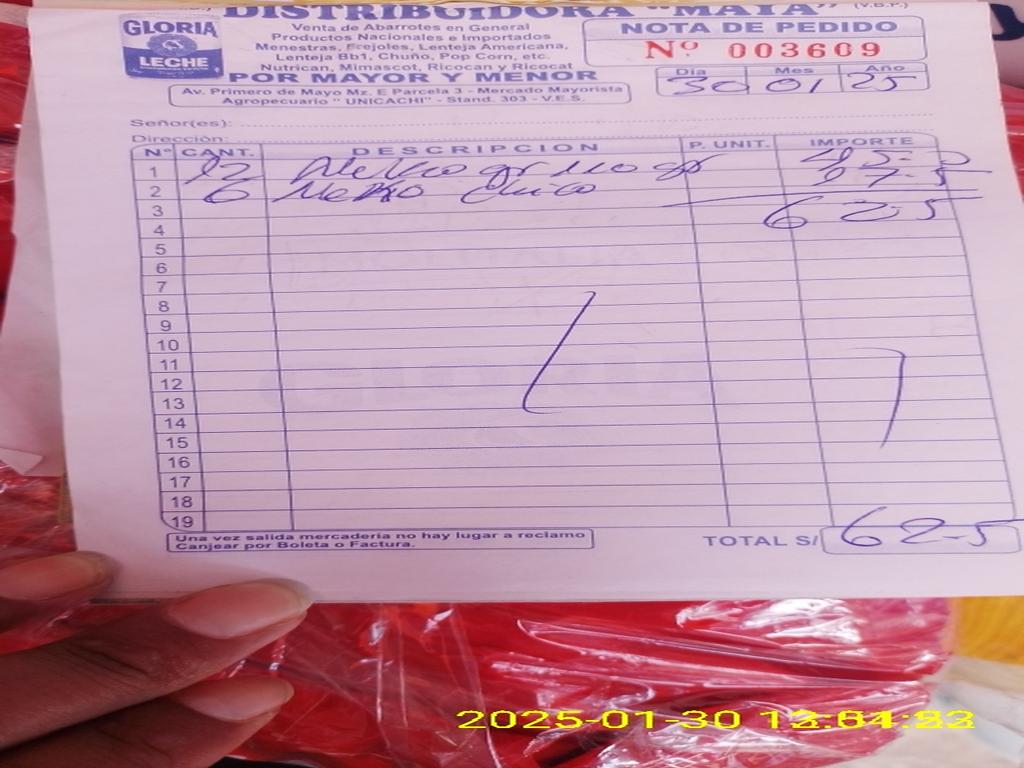 DISTRIBUIDORA "MAYA" (V.B.P.)
GLORIA
LECHE
Venta de Abarrotes en General
Productos Nacionales e Importados
Menestras, Frejoles, Lenteja Americana,
Lenteja Bb1, Chuño, Pop Corn, etc.
Nutrican, Mimascot, Ricocan y Ricocat
POR MAYOR Y MENOR
Av. Primero de Mayo Mz. E Parcela 3 - Mercado Mayorista
Agropecuario " UNICACHI" - Stand. 303 - V.E.S.
NOTA DE PEDIDO
Nº 003609
Día Mes Año
30 01 25
Señor(es):
Dirección:
Nº CANT. DESCRIPCION P. UNIT. IMPORTE
1 12
2 6 17-5
3 62-5
4
5
6
7
8
9
10
11
12
13
14
15
16
17
18
19
Una vez salida mercadería no hay lugar a reclamo
Canjear por Boleta o Factura.
TOTAL S/ 62-5
2025-01-30